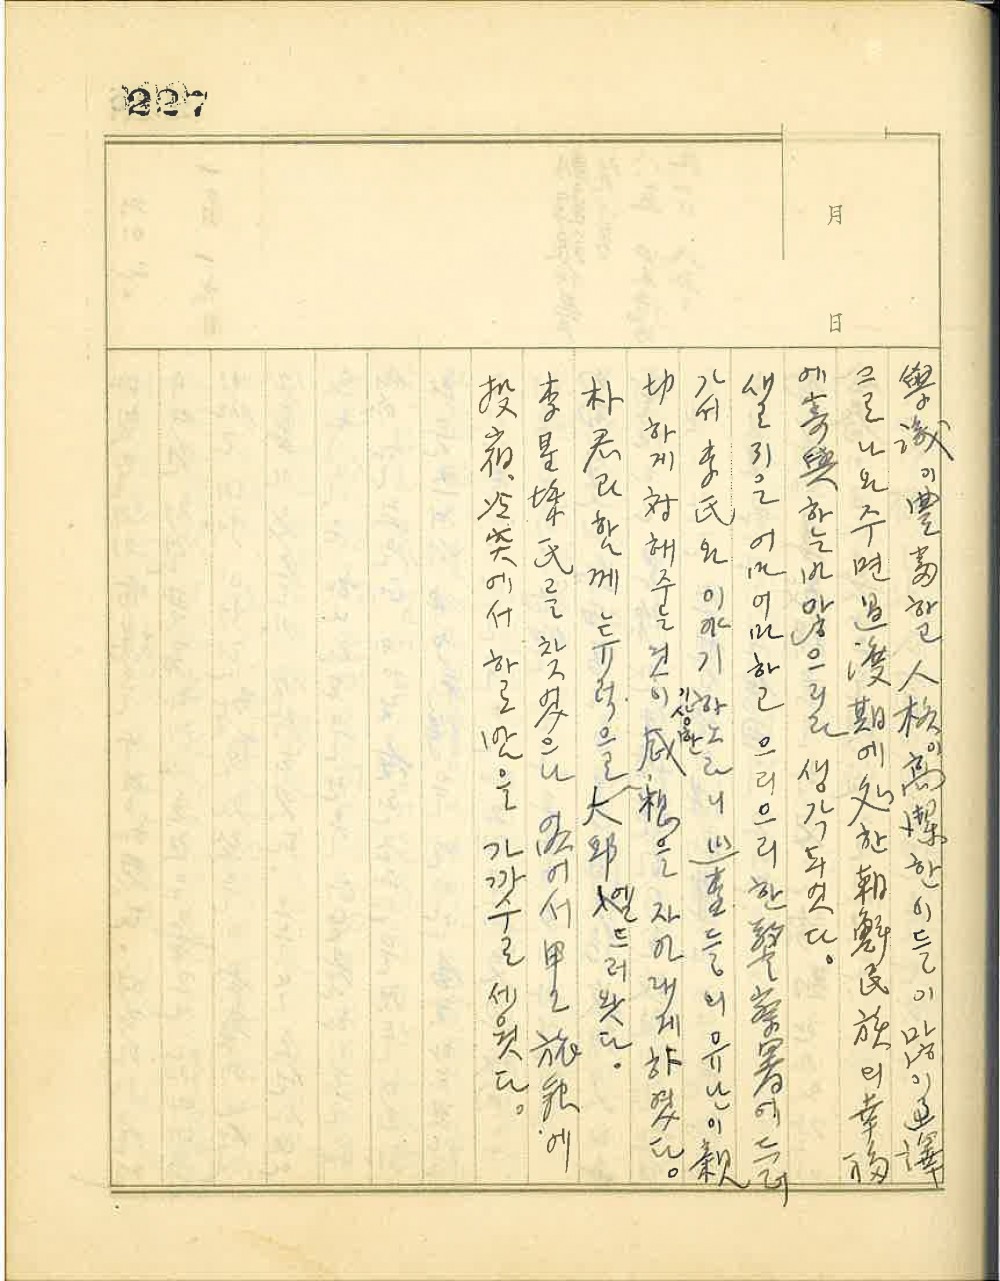 227
月
日
學識이豊富하고 人格이高潔한이들이 많이通譯
으로 나와주면 過渡期에處한朝鮮民族의幸福
에寄與하는바많으리라 생각되엿다.
샐리은 어마어마하고 으리으리한警察署에들러
가서 李氏와 이야기하노라니 巡査들의 유난이親
切하게 對해주는것이 진상한 感想을 자아내게 하였다.
朴君과 함께 튜럭으로 大邱엘 드러왓다.
李星 氏를 찾었으나 없어서 甲乙旅館에
投宿. 冷突에서 하로밤을 가까수로 세웟다.